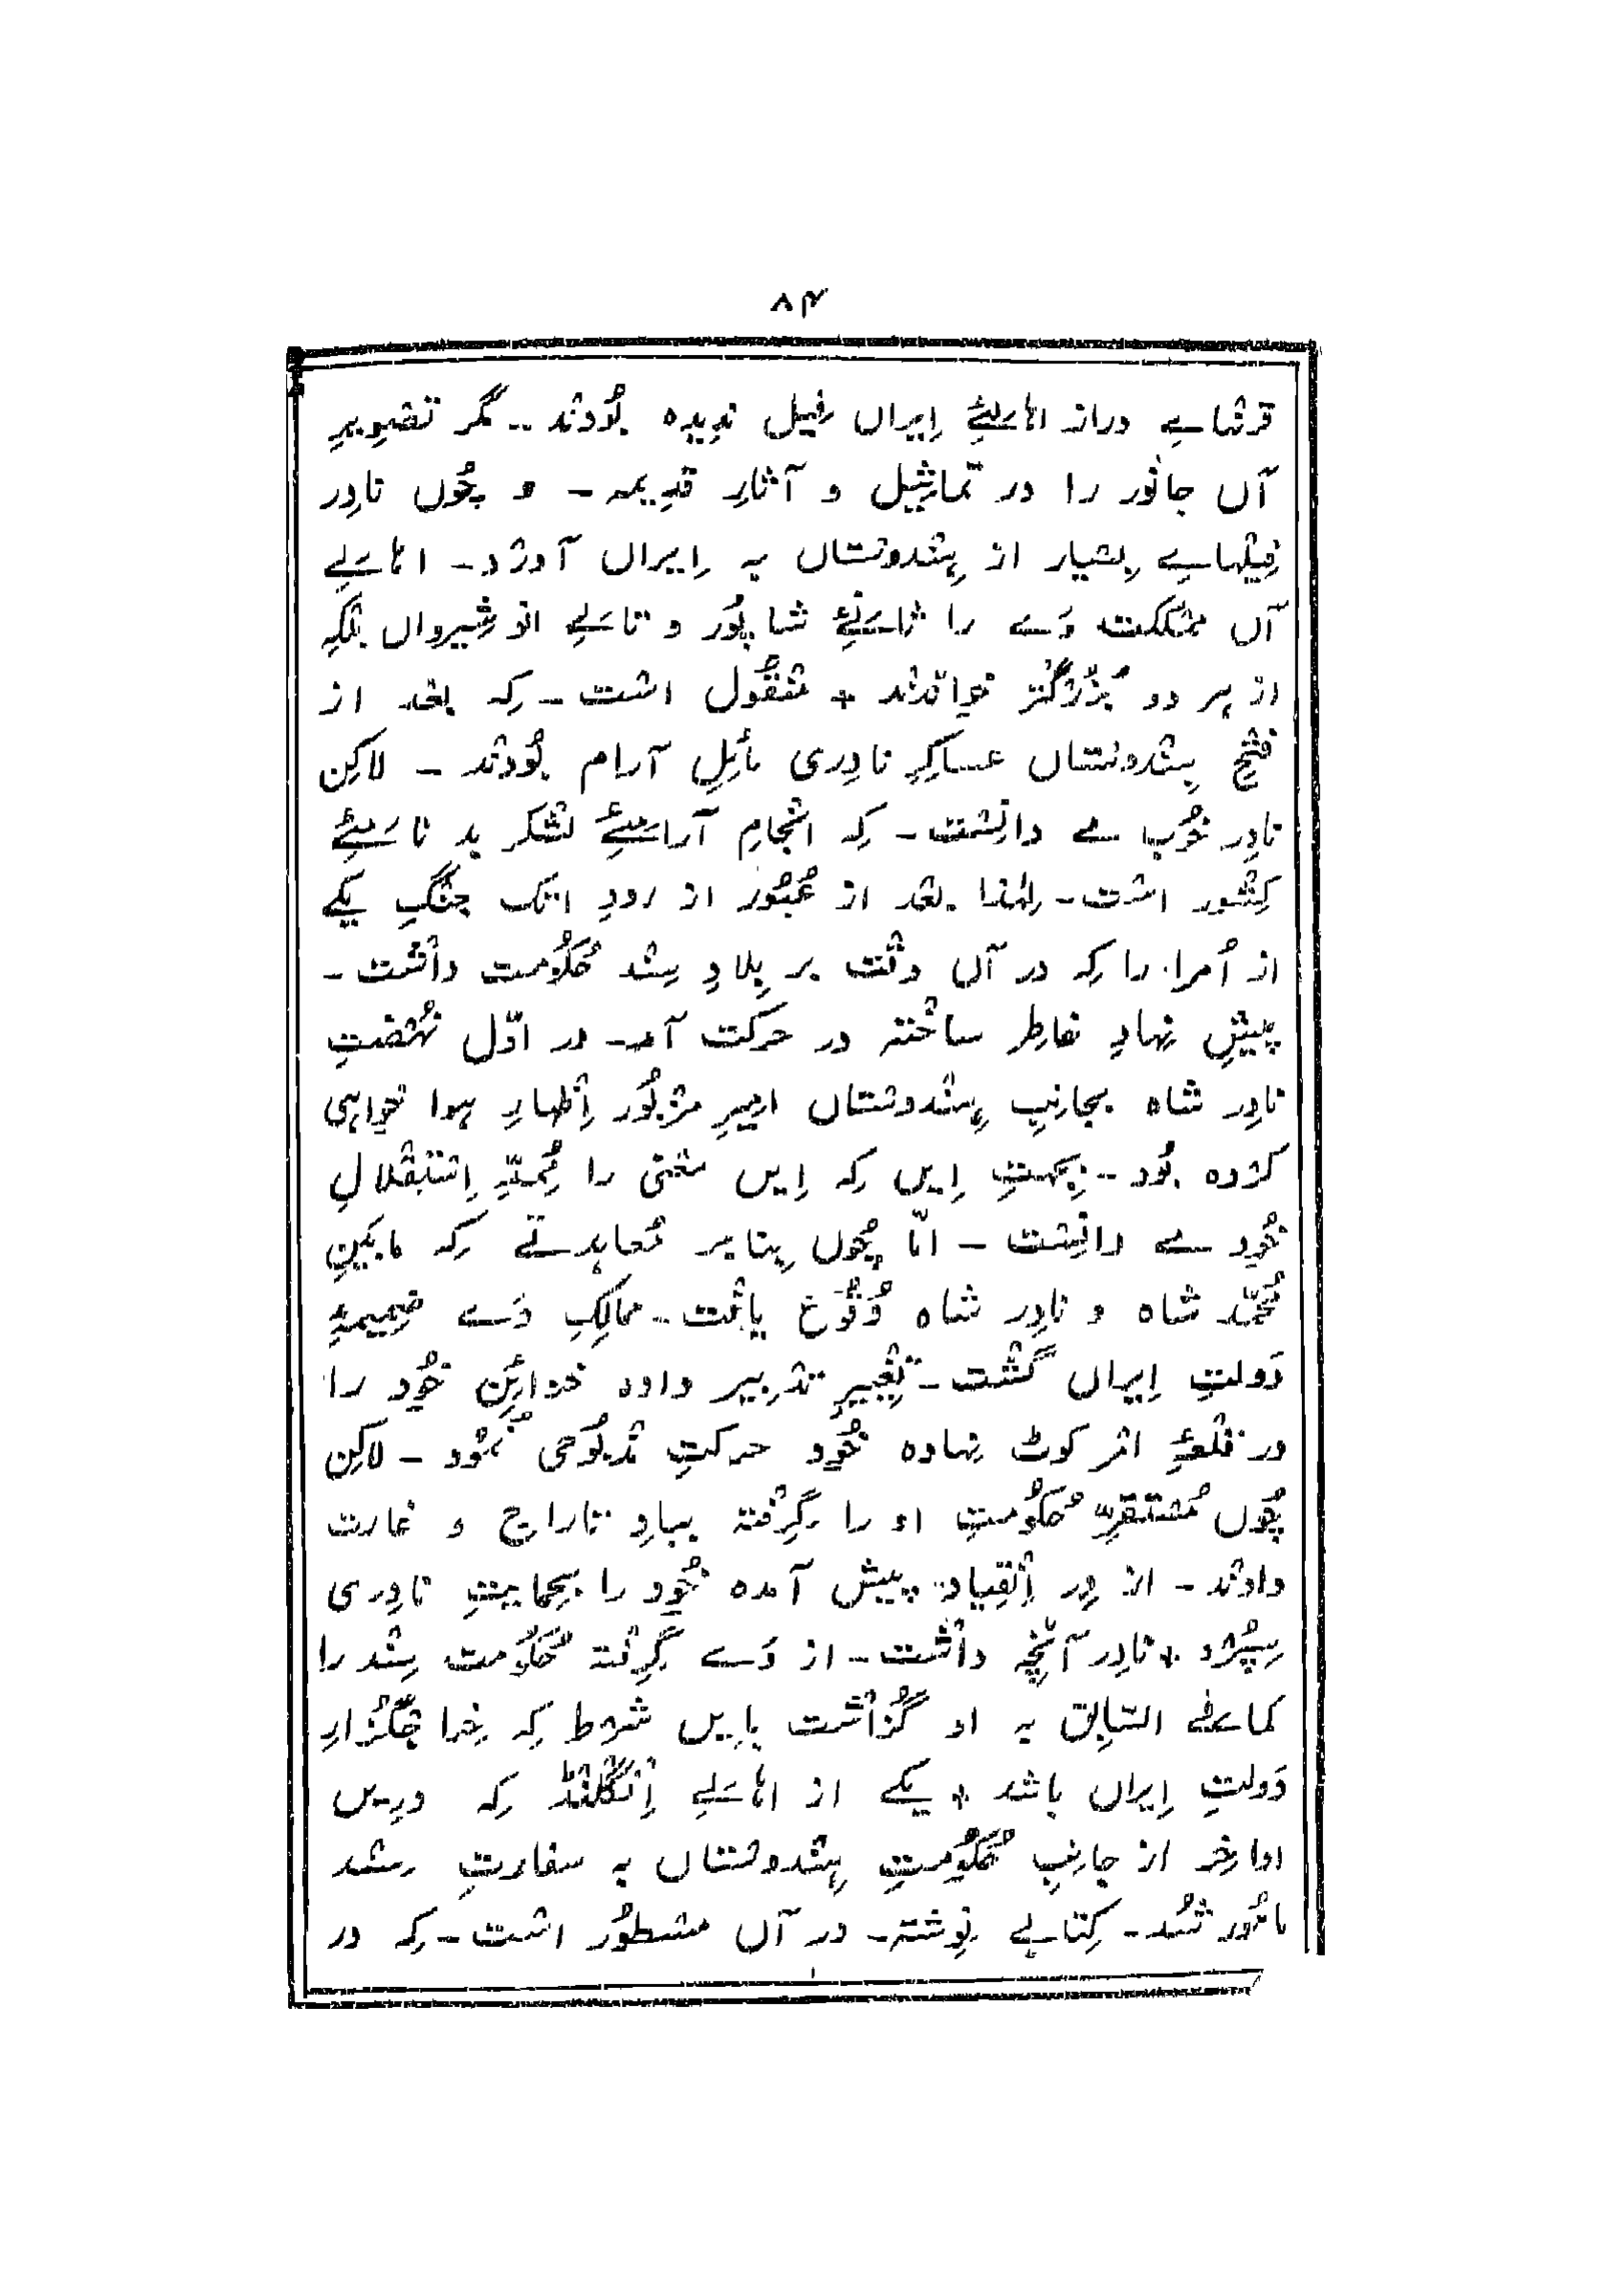 ۸۴
قرنہاے دراز اہالیِٔ اِیراں فِیل ندِیدہ بُودند ۔ مگر تصوِیرِ
آں جانور را در تماثِیل و آثارِ قدِیمہ ۔ و چُوں نادِر
فِیلہاے بِسیار از ہِندوستاں بہ اِیراں آورد ۔ اہالیِ
آں مملکت وَے را ثانیِٔ شاپُور و تالیِ انوشِیرواں بلکِہ
از ہر دو بُزُرگتر خواندند * منقُول است ۔ کِہ بعد از
فتحِ ہِندوستاں عساکِرِ نادِری مائِلِ آرام بُودند ۔ لاکِن
نادِر خُوب مے دانِست ۔ کِہ انجامِ آرامیِٔ لشکر بد نامیِٔ
کِشور است ۔ لِہٰذا بعد از عُبُور از رودِ اٹک جنگِ یکے
از اُمرا را کِہ در آں وقت بر بِلادِ سِند حُکُومت داشت ۔
پیشِ نِہادِ خاطِر ساختہ در حرکت آمد ۔ در اوّل نُہضتِ
نادِر شاہ بجانِبِ ہِندوستاں امِیرِ مزبُور اِظہارِ ہوا خواہی
کردہ بُود ۔ بِجہتِ اِیں کِہ اِیں معنی را مُمِدِّ اِستِقلالِ
خُود مے دانِست ۔ امّا چُوں بِنا بر مُعاہدتے کِہ مابَینِ
مُحمّد شاہ و نادِر شاہ وُقُوع یافت ۔ ممالِکِ وَے ضمِیمہٖ
دَولتِ اِیراں گشت ۔ تغیِیرِ تدبِیر دادہ خزائِنِ خُود را
در قلعۂِ امر کوٹ نِہادہ خُود حرکتِ مذبُوحی نمُود ۔ لاکِن
چُوں مُستقرِّ حُکُومتِ او را گِرِفتہ ببادِ تاراج و غارت
دادند ۔ از درِ اِنقِیاد پیش آمدہ خُود را بحِمایتِ نادِری
سِپُرد * نادِر آنچِہ داشت ۔ از وَے گِرِفتہ حُکُومت سِند را
کما فی السّابِق بہ او گُزاشت باِیں شرط کِہ خِراجگُزارِ
دَولتِ اِیراں باشد * یکے از اہالیِ اِنگلنڈ کِہ درِیں
اواخِر از جانِبِ حُکُومتِ ہِندوستاں بہ سفارتِ سِند
مامُور شُد ۔ کِتابے نوِشتہ ۔ در آں مسطُور است ۔ کِہ در